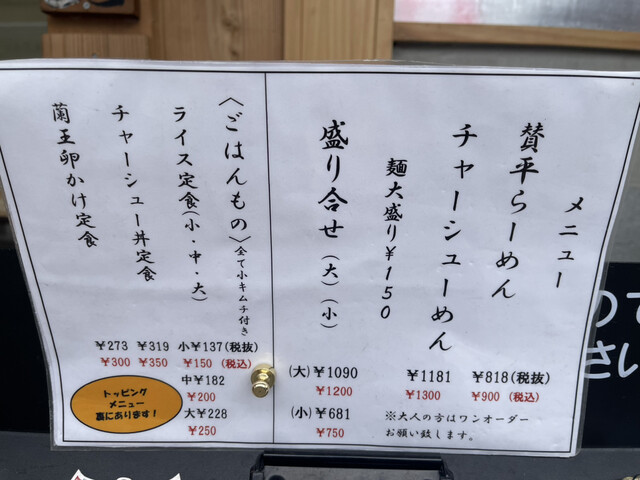 メニュー
賛平らーめん
¥818(税抜)
¥900(税込)
チャーシューめん
¥1181
¥1300
麺大盛り¥150
盛り合せ(大)(小)
(大)¥1090
¥1200
(小)¥681
¥750
※大人の方はワンオーダー
お願い致します。
〈ごはんもの〉全て小キムチ付き
ライス定食(小・中・大)
小¥137(税抜)
¥150(税込)
中¥182
¥200
大¥228
¥250
チャーシュー丼定食
¥319
¥350
蘭王卵かけ定食
¥273
¥300
トッピング
メニュー
裏にあります!
ので
さい